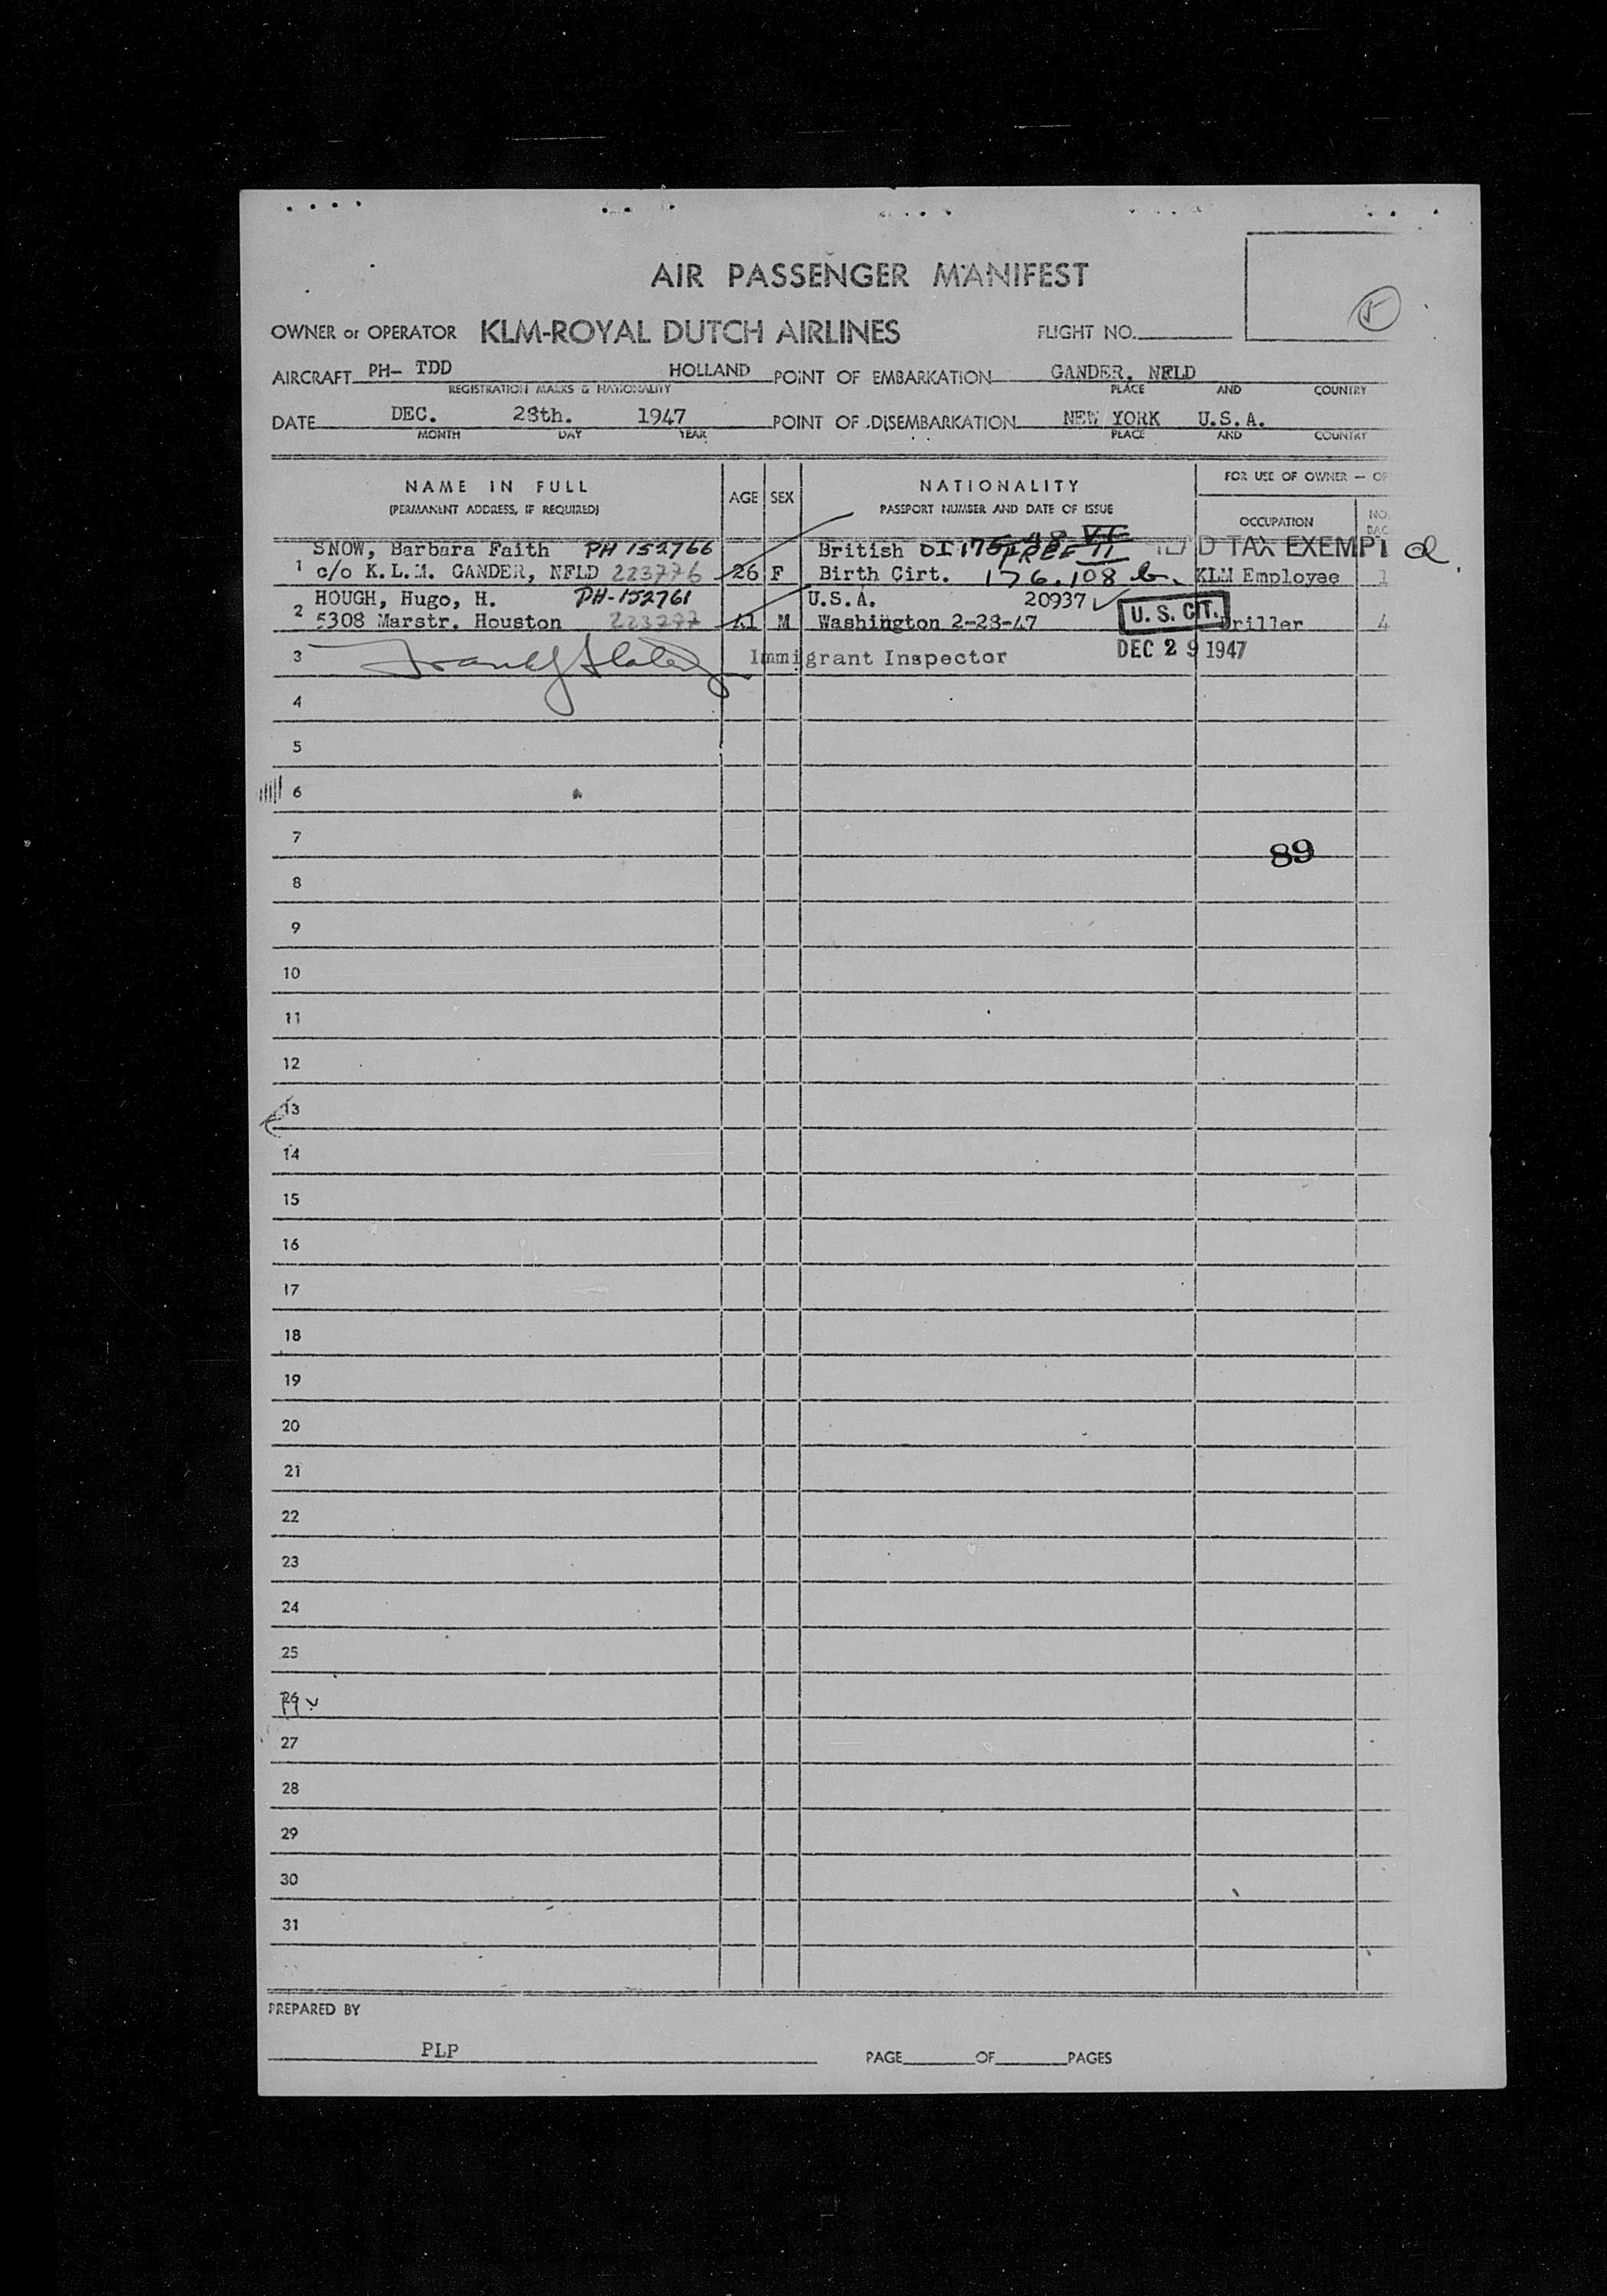 AIR PASSENGER MANIFEST
OWNER or OPERATOR KLM-ROYAL DUTCH AIRLINES FLIGHT NO.
AIRCRAFT PH- TDD HOLLAND POINT OF EMBARKATION GANDER, NFLD
REGISTRATION MARKS & NATIONALITY PLACE AND COUNTRY
DATE DEC. 28th. 1947 POINT OF DISEMBARKATION NEW YORK U.S.A.
MONTH DAY YEAR PLACE AND COUNTRY
NAME IN FULL AGE SEX NATIONALITY FOR USE OF OWNER — OP
(PERMANENT ADDRESS, IF REQUIRED) PASSPORT NUMBER AND DATE OF ISSUE OCCUPATION NO.
SNOW, Barbara Faith PH 152766 British D TAX EXEMPT
1 c/o K.L.M. GANDER, NFLD 223776 26 F Birth Cirt. 176.108 b. KLM Employee 1
HOUGH, Hugo, H. PH-152761 U.S.A. 20937
2 5308 Marstr. Houston 41 M Washington 2-28-47 U. S. CIT. riller 4
3 Immigrant Inspector DEC 29 1947
4
5
6
7
89
8
9
10
11
12
13
14
15
16
17
18
19
20
21
22
23
24
25
26
27
28
29
30
31
PREPARED BY
PLP PAGE OF PAGES